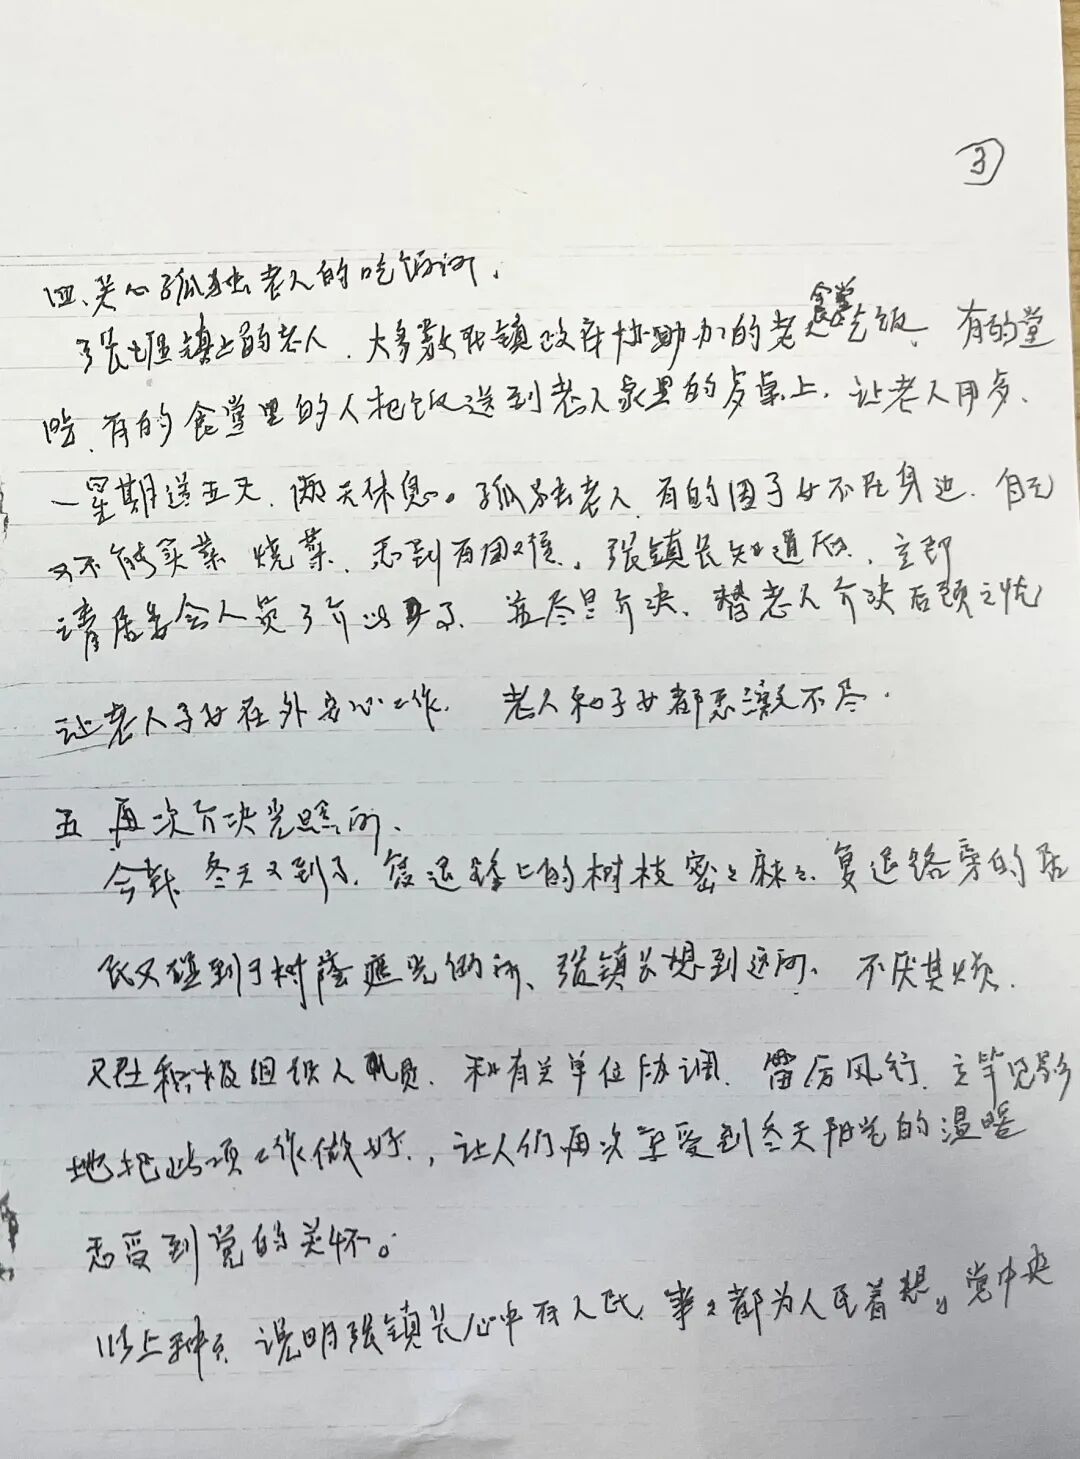 ③
四、关心孤独老人的吃饭问
张堰镇上的老人、大多数在镇政府协助办的老食堂吃饭、有的堂
吃、有的食堂里的人把饭送到老人家里的桌上、让老人用
一星期送五天、两天休息。孤独老人、有的因子女不在身边、自己
又不能买菜 烧菜、感到有困难。张镇长知道后、立即
请居委会人员了介 并尽早介决、替老人介决后顾之忧
让老人子女在外安心工作、老人和子女都感激不尽.
五 再次介决光照问、
今年 冬天又到了、复退路上的树枝密々麻々、复退路旁的居
民又碰到了树荫遮光的问、张镇长想到这问、不厌其烦.
又在积极组织人员、和有关单位协调、雷厉风行、立竿见影
地把此项工作做好、让人们再次享受到冬天阳光的温暖
感受到党的关怀。
以上种种 说明张镇长心中有人民 事々都为人民着想。党中央